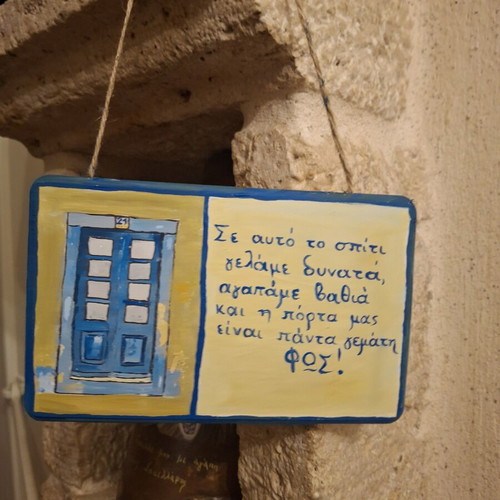 21
Σε αυτό το σπίτι
γελάμε δυνατά,
αγαπάμε βαθιά
και η πόρτα μας
είναι πάντα γεμάτη
ΦΩΣ!